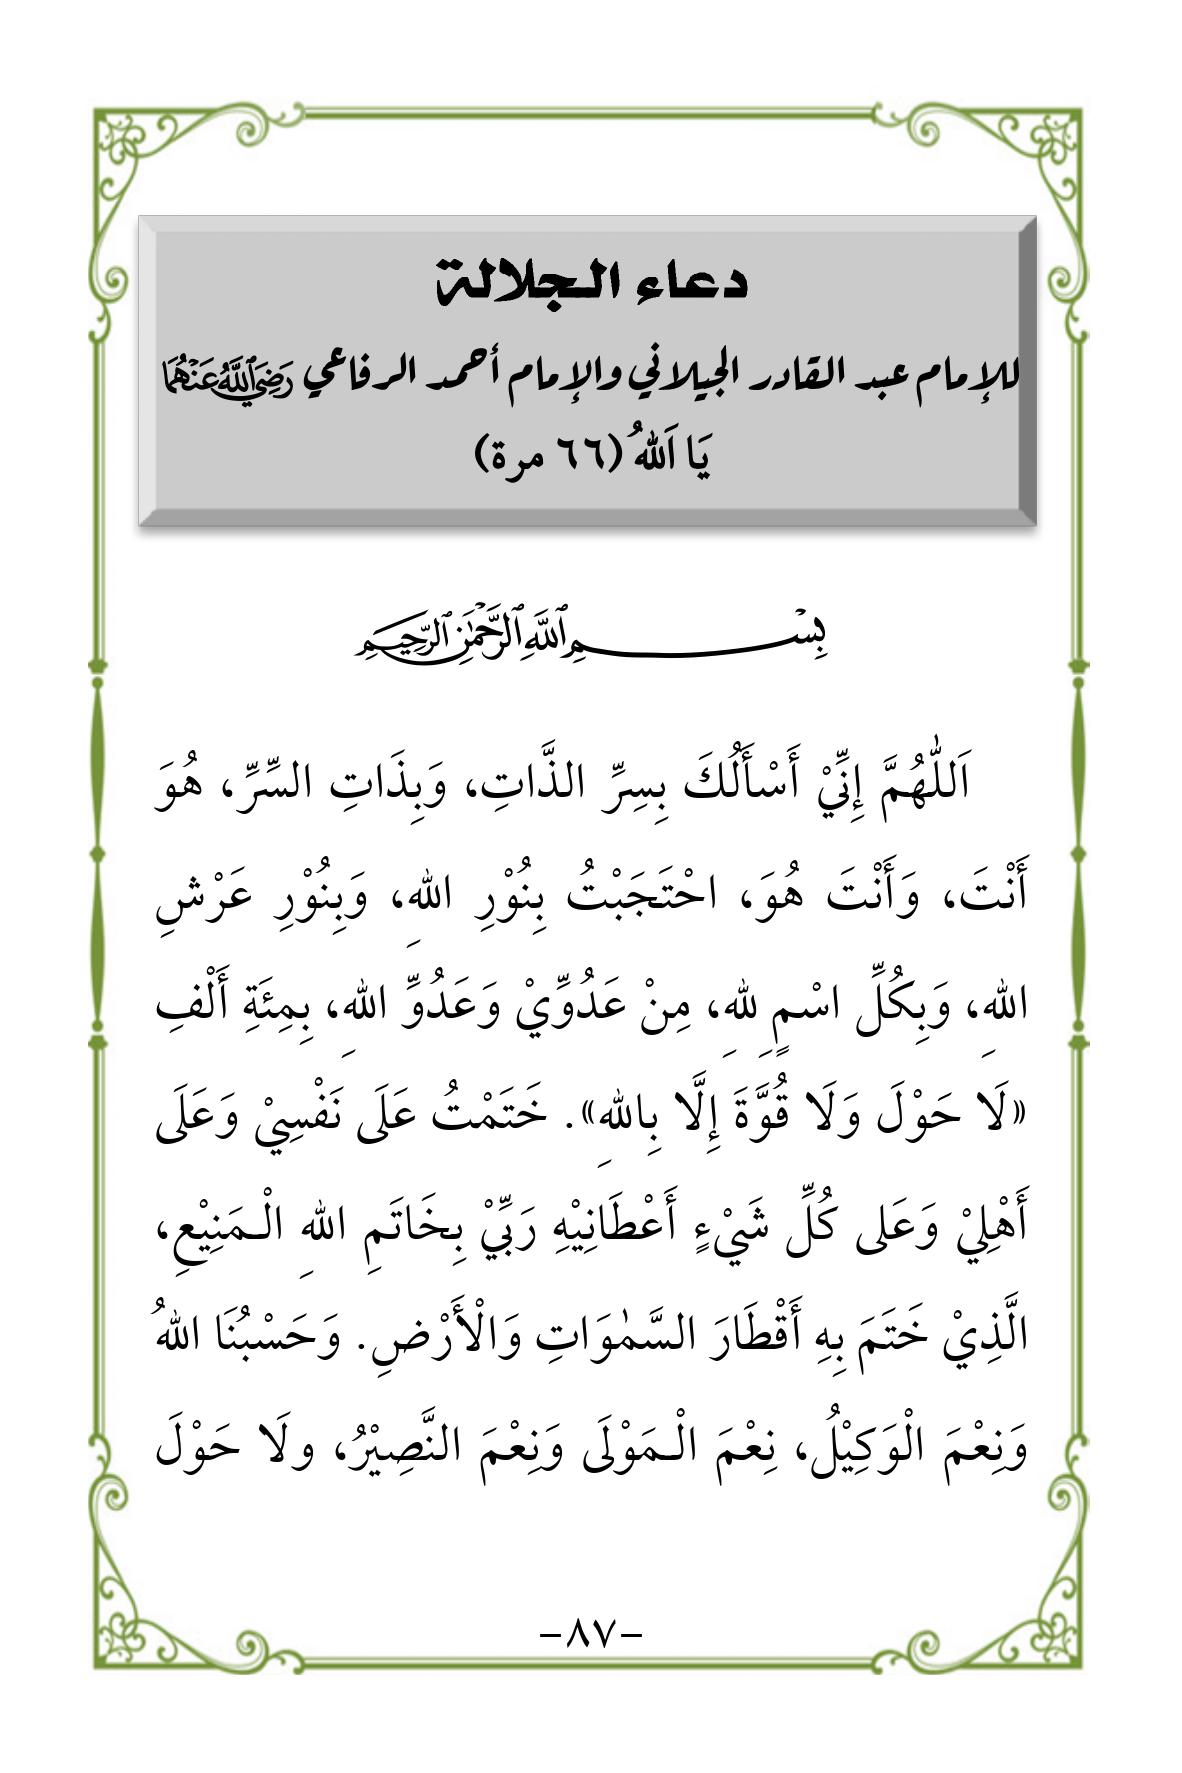 دعاء الجلالة
للإمام عبد القادر الجيلاني والإمام أحمد الرفاعي رَضِيَ اللَّهُ عَنْهُمَا
يَا اَللهُ (٦٦ مرة)
بِسْمِ اللَّهِ الرَّحْمَٰنِ الرَّحِيمِ
اَللّٰهُمَّ إِنِّيْ أَسْأَلُكَ بِسِرِّ الذَّاتِ، وَبِذَاتِ السِّرِّ، هُوَ
أَنْتَ، وَأَنْتَ هُوَ، احْتَجَبْتُ بِنُوْرِ اللهِ، وَبِنُوْرِ عَرْشِ
اللهِ، وَبِكُلِّ اسْمٍ لِلهِ، مِنْ عَدُوِّيْ وَعَدُوِّ اللهِ، بِمِئَةِ أَلْفِ
«لَا حَوْلَ وَلَا قُوَّةَ إِلَّا بِاللهِ». خَتَمْتُ عَلَى نَفْسِيْ وَعَلَى
أَهْلِيْ وَعَلى كُلِّ شَيْءٍ أَعْطَانِيْهِ رَبِّيْ بِخَاتَمِ اللهِ الْـمَنِيْعِ،
الَّذِيْ خَتَمَ بِهِ أَقْطَارَ السَّمٰوَاتِ وَالْأَرْضِ. وَحَسْبُنَا اللهُ
وَنِعْمَ الْوَكِيْلُ، نِعْمَ الْـمَوْلَى وَنِعْمَ النَّصِيْرُ، ولَا حَوْلَ
-٨٧-